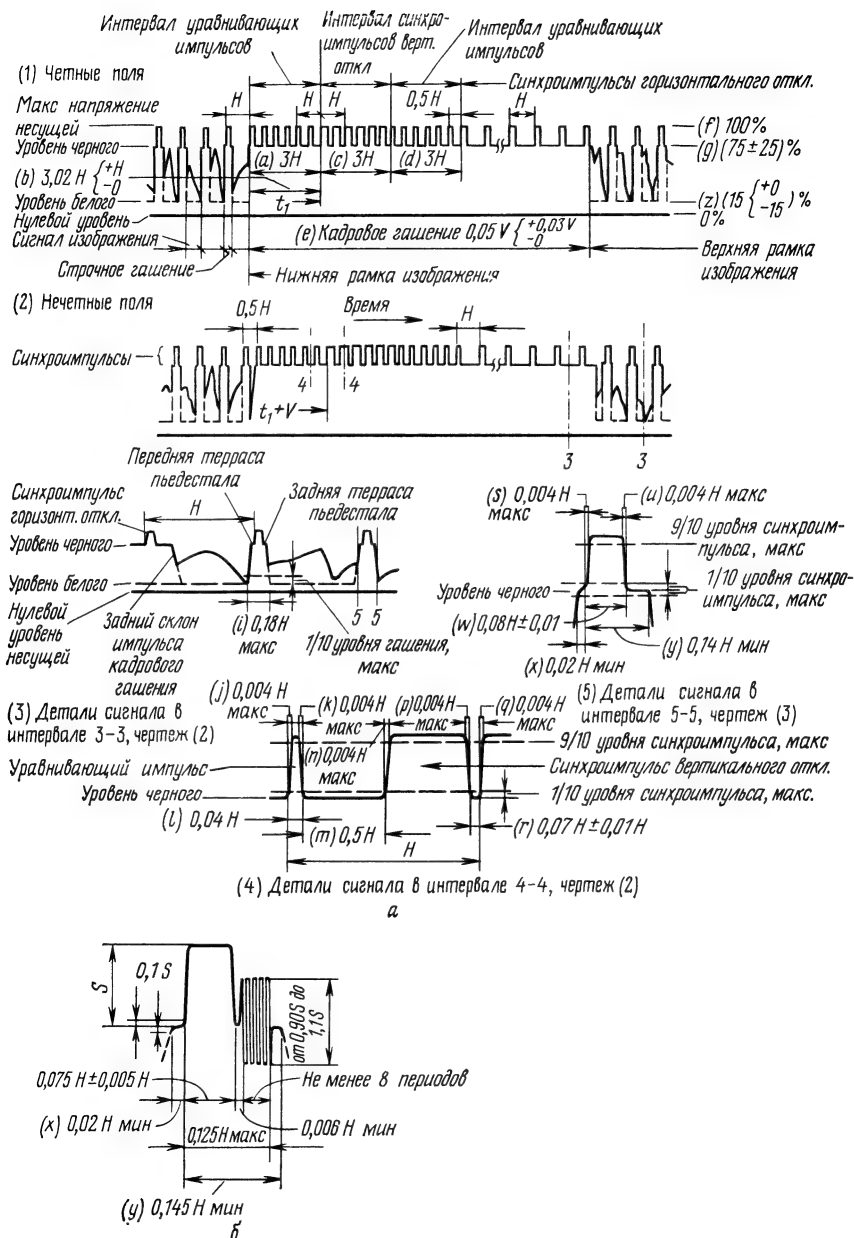 Интервал уравнивающих
импульсов
Интервал синхро-
импульсов верт.
откл
Интервал уравнивающих
импульсов
(1) Четные поля
Синхроимпульсы горизонтального откл.
Макс напряжение
несущей
H
H
H
0,5H
H
(f) 100%
Уровень черного
(g) (75±25)%
(a) 3H
(c) 3H
(d) 3H
(b) 3,02 H {+H −0
Уровень белого
t₁
(z) (15 {+0 −15) %
Нулевой уровень
0%
Сигнал изображения
(e) Кадровое гашение 0,05 V {+0,03 V −0
Верхняя рамка
изображения
Строчное гашение
Нижняя рамка изображения
(2) Нечетные поля
0,5H
Время
H
Синхроимпульсы
4
4
t₁+V
3
3
Передняя терраса
пьедестала
Синхроимпульс
горизонт. откл.
H
Задняя терраса
пьедестала
Уровень черного
Уровень белого
Нулевой
уровень
несущей
Задний склон
импульса
кадрового
гашения
(i) 0,18H
макс
5
5
1/10 уровня гашения,
макс
(s) 0,004H
макс
(u) 0,004H макс
9/10 уровня синхроим-
пульса, макс
Уровень черного
1/10 уровня синхро-
импульса, макс
(w) 0,08H±0,01
(y) 0,14H мин
(x) 0,02H мин
(3) Детали сигнала в
интервале 3-3, чертеж (2)
(5) Детали сигнала в
интервале 5-5, чертеж (3)
(j) 0,004H
макс
(k) 0,004H
макс
(p) 0,004H
макс
(q) 0,004H
макс
(n) 0,004H
макс
9/10 уровня синхроимпульса, макс
Уравнивающий импульс
Синхроимпульс вертикального откл.
Уровень черного
1/10 уровня синхроимпульса, макс.
(l) 0,04H
(m) 0,5H
(r) 0,07H±0,01H
H
(4) Детали сигнала в интервале 4-4, чертеж (2)
а
S
0,1S
от 0,90S до
1,1S
0,075H±0,005H
Не менее 8 периодов
(x) 0,02H мин
0,125H макс
0,006H мин
(y) 0,145H мин
б